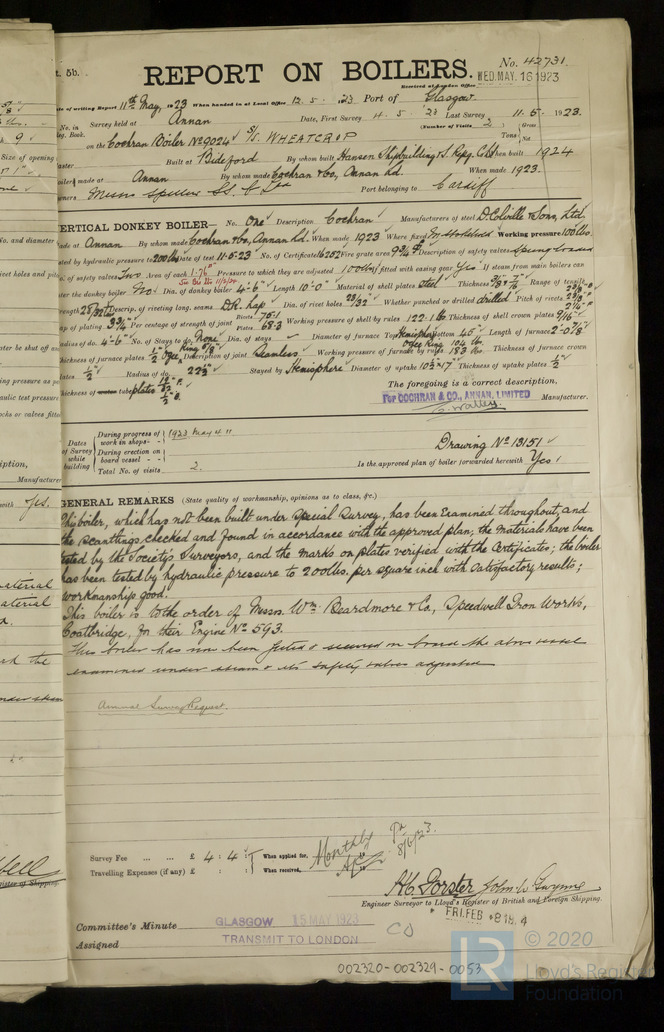 t. 5b.
REPORT ON BOILERS.
No. 42731
Received at London Office
WED. MAY. 16 1923
Date of writing Report 11th May, 1923 When handed in at Local Office 12.5. 23 Port of Glasgow
No. in Survey held at Annan Date, First Survey 4.5.23 Last Survey 11.5.1923.
Reg. Book. (Number of Visits 2.)
on the Cochran Boiler No 9024 S/S. WHEATCROP Tons Gross Net
Built at Bideford By whom built Hansen Shipbuilding & S. Repg. Co Ld When built 1924
made at Annan By whom made Cochran & Co, Annan Ld. When made 1923.
Owners Messrs Spillers SS. Co Ltd Port belonging to Cardiff
VERTICAL DONKEY BOILER— No. One Description Cochran Manufacturers of steel D. Colville & Sons, Ltd.
Made at Annan By whom made Cochran & Co, Annan Ld. When made 1923 Where fixed In Stokehold Working pressure 100 lbs.
tested by hydraulic pressure to 200 lbs Date of test 11.5.23 No. of Certificate 16252 Fire grate area 9 3/4 Description of safety valves Spring loaded
No. of safety valves Two Area of each 1.76" Pressure to which they are adjusted 100 lbs If fitted with easing gear Yes If steam from main boilers can
enter the donkey boiler No Dia. of donkey boiler 4'-6" Length 10'-0" Material of shell plates Steel Thickness Range of tensile
strength 28/32 Tons Descrip. of riveting long. seams DR. Lap Dia. of rivet holes 23/32 Whether punched or drilled drilled Pitch of rivets
Lap of plating 3 3/4" Per centage of strength of joint Rivets 75.1 Plates 68.3 Working pressure of shell by rules 122.1 lbs Thickness of shell crown plates 9/16"
Radius of do. 4'-6" No. of Stays to do. None Dia. of stays Diameter of furnace Top Hemisphere Bottom 45" Length of furnace 2'-0 7/8"
Thickness of furnace plates 1/2" Ogee Ring 5/8" Description of joint Seamless Working pressure of furnace by rules Ogee Ring 104 lbs 183 lbs Thickness of furnace crown
plates 1/2" Radius of do. 22 1/2" Stayed by Hemisphere Diameter of uptake 10 1/2" × 17" Thickness of uptake plates 1/2"
Thickness of water tube plates
The foregoing is a correct description,
For COCHRAN & CO., ANNAN, LIMITED Manufacturer.
Dates of Survey while building
During progress of work in shops - - 1923 May 4 11
During erection on board vessel - -
Total No. of visits 2.
Drawing No 13151
Is the approved plan of boiler forwarded herewith Yes
GENERAL REMARKS (State quality of workmanship, opinions as to class, &c.)
This boiler, which has not been built under Special Survey, has been examined throughout, and
the scantlings checked and found in accordance with the approved plan; the materials have been
tested by the Society's Surveyors, and the marks on plates verified with the Certificates; the boiler
has been tested by hydraulic pressure to 200 lbs. per square inch with satisfactory results;
workmanship good.
This boiler is to the order of Messrs. Wm. Beardmore & Co., Speedwell Iron Works,
Coatbridge, for their Engine No 593.
This boiler has now been fitted & secured on board the above vessel
examined under steam & its safety valves adjusted
Annual Survey Request.
Survey Fee ... ... £ 4 : 4 : When applied for,
Travelling Expenses (if any) £ : : When received,
Monthly a/c
8/6/23.
John W Gwynne
Engineer Surveyor to Lloyd's Register of British and Foreign Shipping.
FRI. FEB 8 1924
Committee's Minute GLASGOW 15 MAY 1923
Assigned TRANSMIT TO LONDON
002320-002329-0053
LR © 2020
Lloyd's Register
Foundation